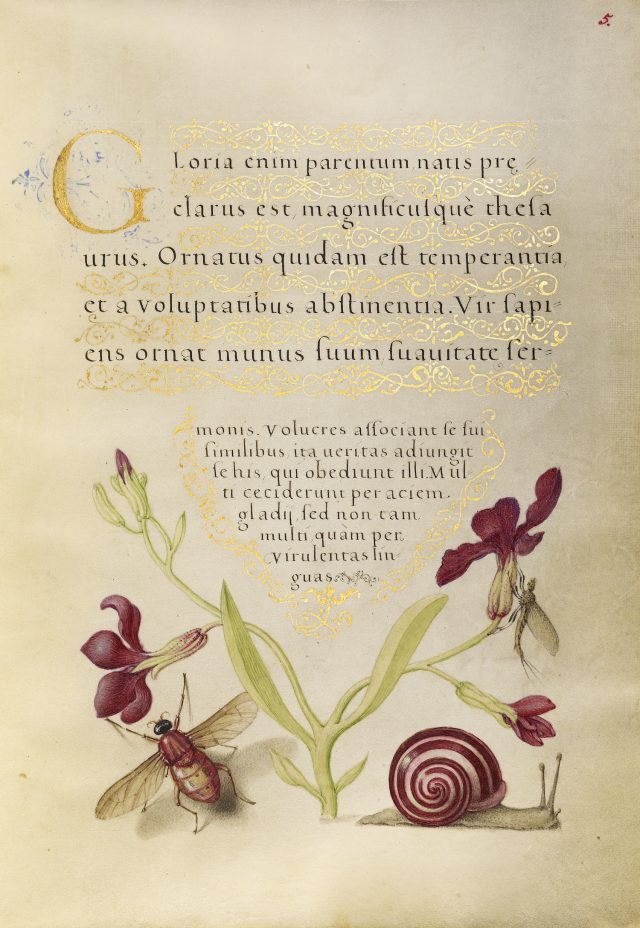 5.
Gloria enim parentum natis prę=
clarus est, magnificusquè thesa
urus. Ornatus quidam est temperantia
et a voluptatibus abstinentia. Vir sapi=
ens ornat munus suum suauitate ser=
monis. Volucres associant se sui
similibus, ita ueritas adiungit
se his, qui obediunt illi. Mul
ti ceciderunt per aciem
gladij, sed non tam
multi, quàm per
virulentas lin
guas.